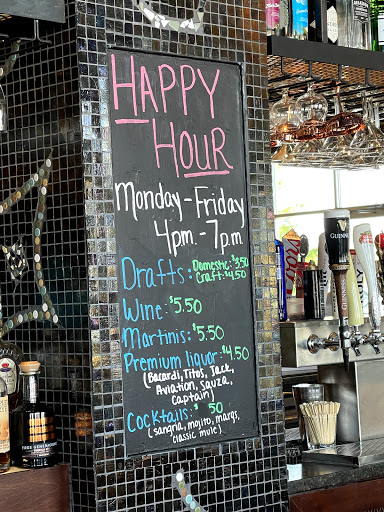 HAPPY
HOUR
Monday-Friday
4pm.-7p.m.
Drafts: Domestic: $3.50
Craft: $4.50
Wine: $5.50
Martinis: $5.50
Premium liquor: $4.50
(Bacardi, Titos, Jack,
Aviation, Sauza,
Captain)
Cocktails: $ 50
(sangria, mojito, margs,
classic mule)
GUINNESS